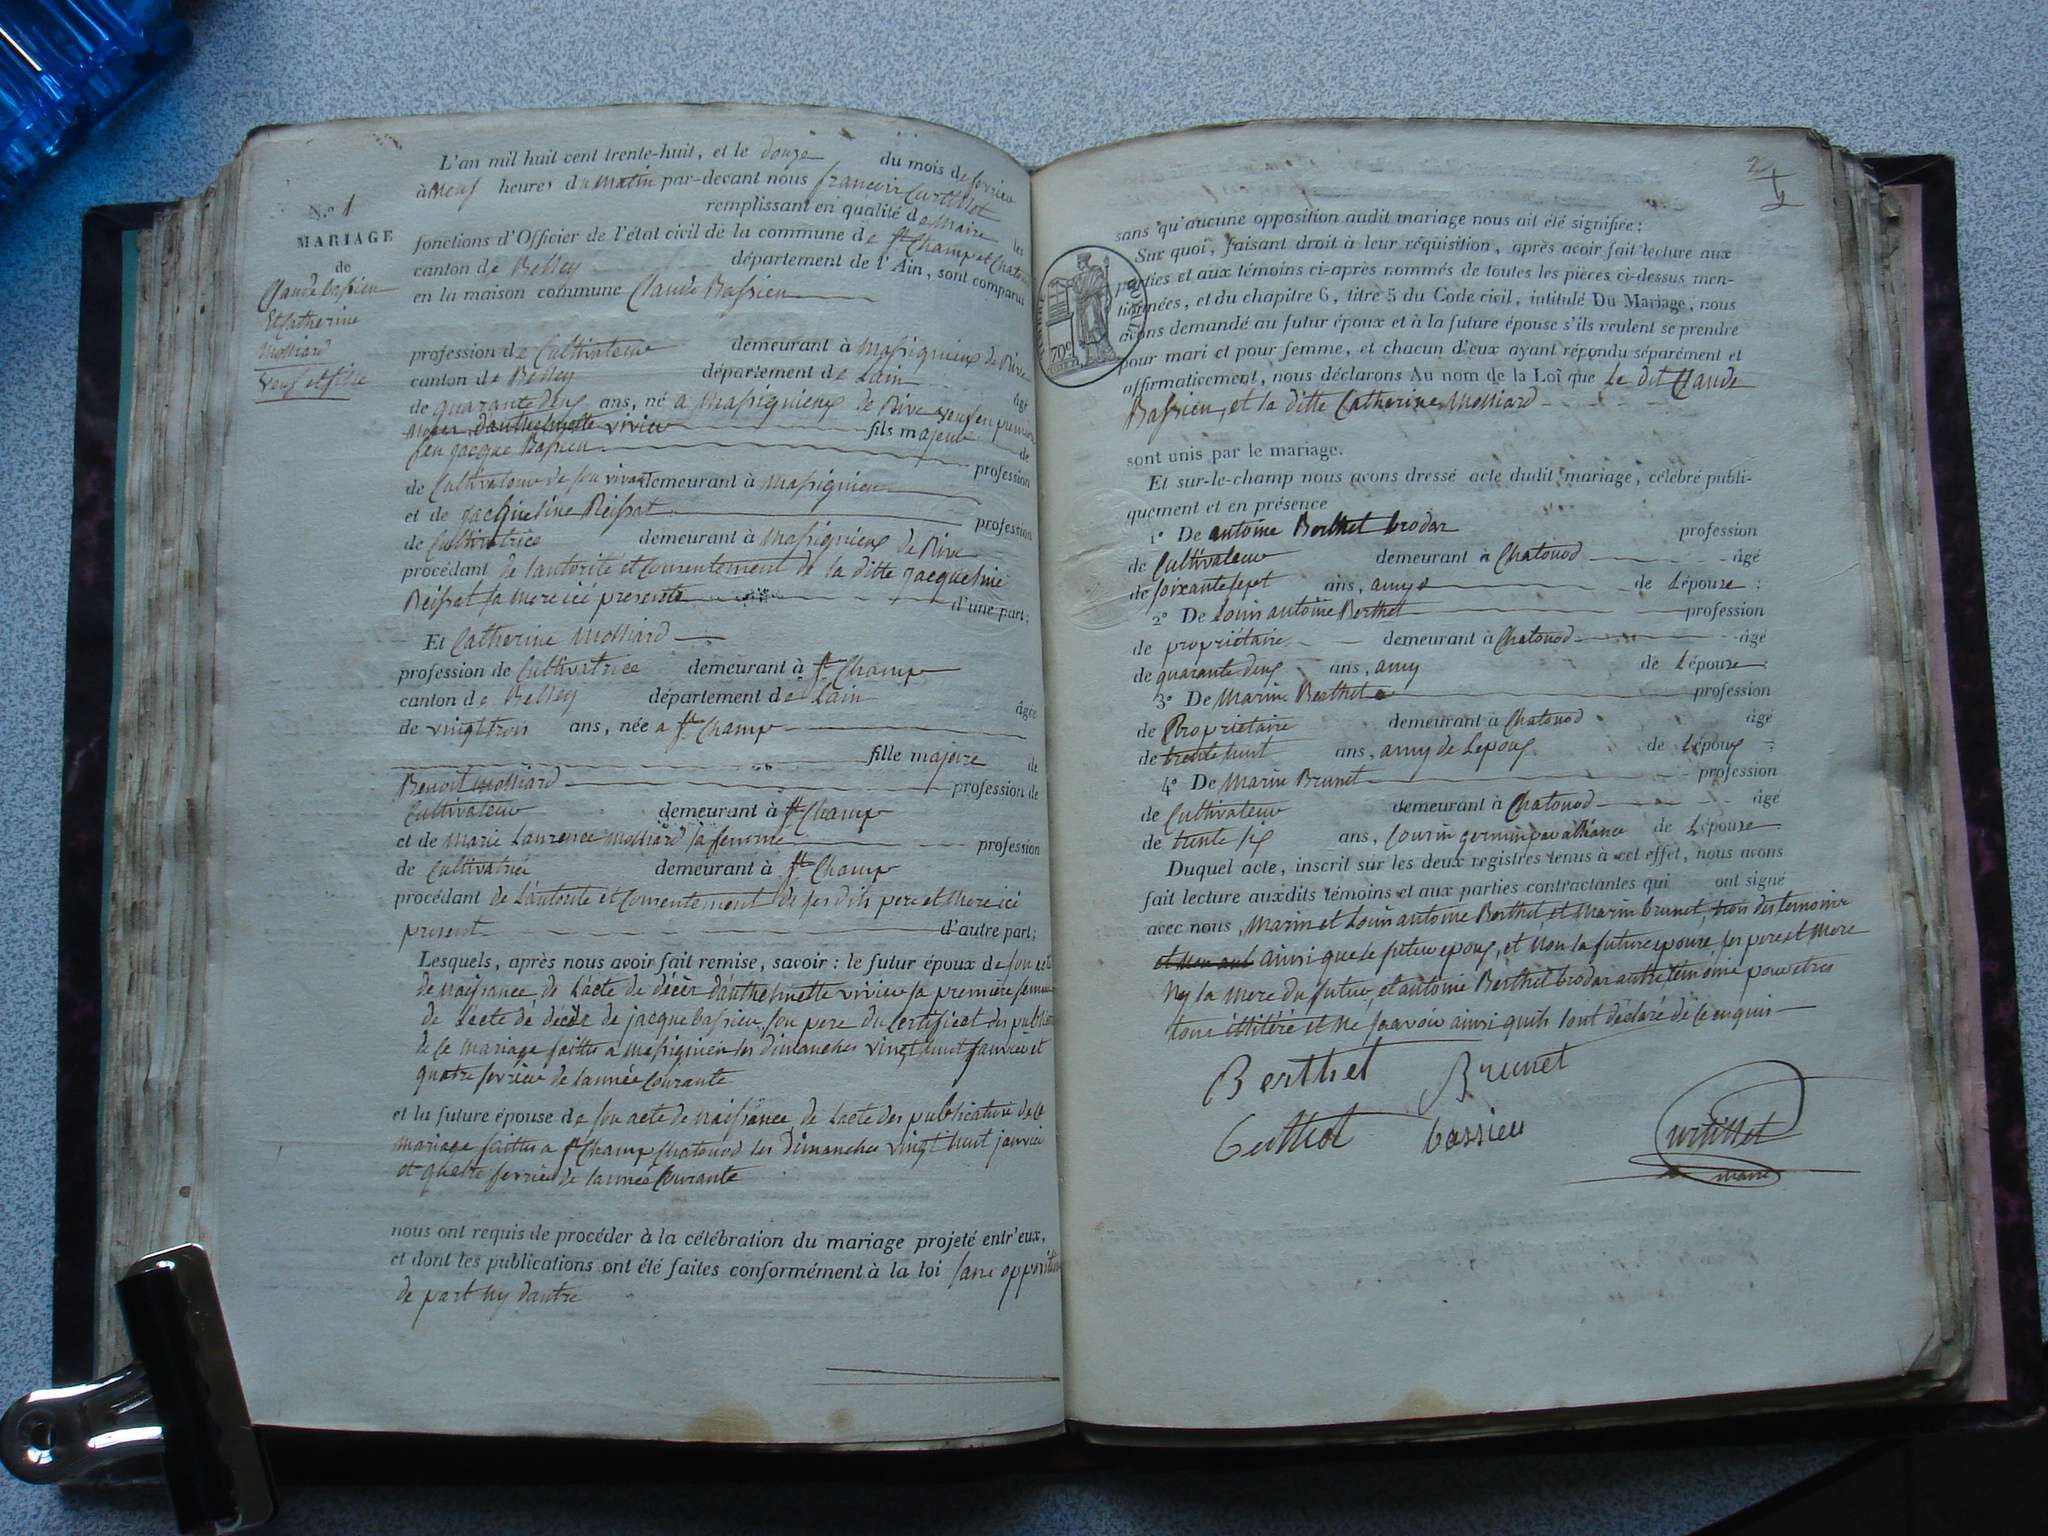 N.º 1
MARIAGE
de
Claude Bassieu
Et Catherine
Molliard
veuf et fille
L'an mil huit cent trente-huit, et le douze du mois de fevrier
à neuf heures du matin par-devant nous francois Curtillet
remplissant en qualité de Maire les
fonctions d'Officier de l'état civil de la commune de St Champ et Chatonod
canton de Belley département de l'Ain, sont comparus
en la maison commune Claude Bassieu
profession de Cultivateur demeurant à Massignieux de Rive
canton de Belley département de Lain
âgé
de quarante deux ans, né a Massignieux de Rive veuf en premiere
danthelmette vivier fils majeur de
feu jacque Bassieu
profession
de Cultivateur de son vivant demeurant à Massignieu
et de jacqueline Reissat
profession
de Cultivatrice demeurant à Massignieux de Rive
procédant de lautorité et Consentement de la ditte jacqueline
Reissat sa mere ici presente d'une part;
Et Catherine Molliard
profession de Cultivatrice demeurant à St Champ
canton de Belley département de Lain
âgée
de vingt trois ans, née a St Champ
fille majeure de
Benoit Molliard profession de
Cultivateur demeurant à St Champ
et de Marie Laurence Molliard sa femme profession
de Cultivatrice demeurant à St Champ
procédant de Lautorité et Consentement de ses dits pere et Mere ici
present d'autre part;
Lesquels, après nous avoir fait remise, savoir : le futur époux de son acte
de naissance de Lacte de décès danthelmette vivier sa premiere femme
de Lacte de décès de jacque bassieu son pere du Certificat des publications
de Ce mariage faittes a Massignieu les dimanches vingt huit janvier et
quatre fevrier de lannée Courante
et la future épouse de son acte de naissance de Lacte des publications de Ce
mariage faittes a St Champ Chatonod les dimanches vingt huit janvier
et quatre fevrier de lannée Courante
nous ont requis de procéder à la célébration du mariage projeté entr'eux,
et dont les publications ont été faites conformément à la loi sans opposition
de part ny dautre
2
sans qu'aucune opposition audit mariage nous ait été signifiée;
Sur quoi, faisant droit à leur réquisition, après avoir fait lecture aux
parties et aux témoins ci-après nommés de toutes les pièces ci-dessus men-
tionnées, et du chapitre 6, titre 5 du Code civil, intitulé Du Mariage, nous
avons demandé au futur époux et à la future épouse s'ils veulent se prendre
pour mari et pour femme, et chacun d'eux ayant répondu séparément et
affirmativement, nous déclarons Au nom de la Loi que Le dit Claude
Bassieu, et la ditte Catherine Molliard
70c
sont unis par le mariage.
Et sur-le-champ nous avons dressé acte dudit mariage, célébré publi-
quement et en présence
1º De antoine Berthet brodar profession
de Cultivateur demeurant à Chatonod âgé
de soixante sept ans, amy de Lépouse ;
2º De Louis antoine Berthet profession
de propriétaire demeurant à Chatonod âgé
de quarante deux ans, amy de Lépouse ;
3º De Marin Berthet profession
de Propriétaire demeurant à Chatonod âgé
de trente huit ans, amy de Lepoux de Lépoux ;
4º De Marin Brunet profession
de Cultivateur demeurant à Chatonod âgé
de trente six ans, Cousin germin par alliance de Lépouse
Duquel acte, inscrit sur les deux registres tenus à cet effet, nous avons
fait lecture auxdits témoins et aux parties contractantes qui ont signé
avec nous, Marin et Louis antoine Berthet et Marin brunet, trois des temoins
ainsi que le futur epoux, et Non la future epouse, ses pere et Mere
Ny la Mere du futur, et antoine Berthet brodar autre témoins pour etres
tous illitéré et Ne scavoir ainsi quils sont déclaré de Ce enquis
Berthet Brunet
berthet bassieu
Curtillet
maire